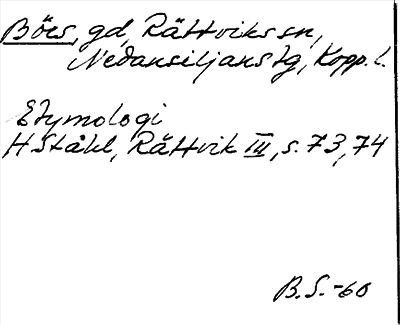 Börs, gd, Rättviks sn,
Nedansiljans tg, Kopp. l.
Etymologi
H Ståhl, Rättvik III, s. 73, 74
B.S.-60